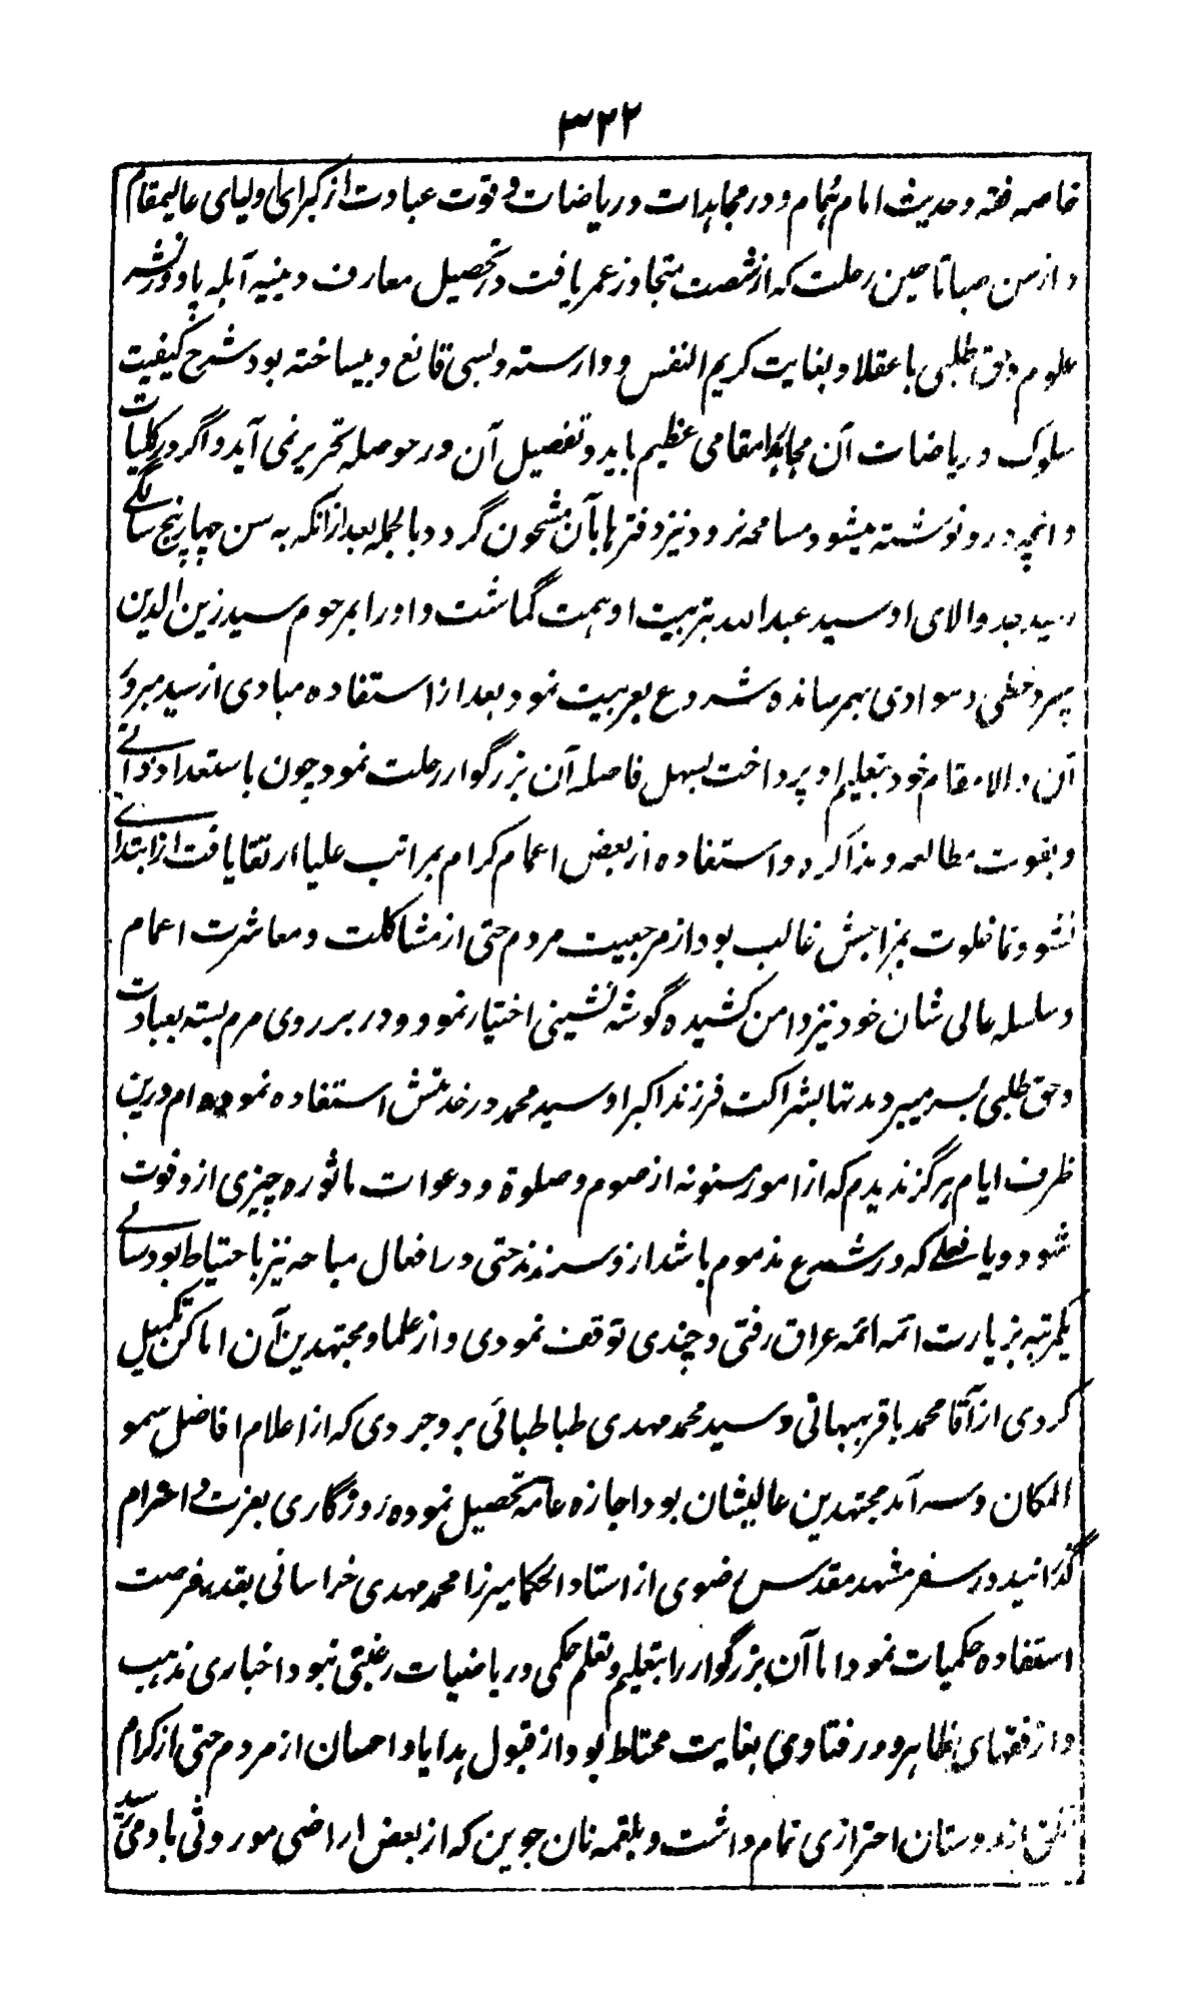 ۳۲۲
خاصه فقه و حدیث امام همام و در مجاهدات و ریاضات و قوت عبادت از کبرای اولیای عالیمقام
و از سن صبا تا حین رحلت که از شصت متجاوز عمر یافت در تحصیل معارف دینیه آبله پا و در نشر
علوم و حق طلبی با عقلا و بغایت کریم النفس و وارسته و بسی قانع و بیساخته بود شرح کیفیت
سلوک و ریاضات آن مجاهد را مقامی عظیم باید و تفصیل آن در حوصله تحریر نمی آید و اگر در کلیات
و انچه درو نوشته میشود مسامحه نرود نیز دفترها بآن مشحون گردد بالجمله بعد از انکه به سن چهار پنج سالگی
رسید جد والای او سید عبدالله بتربیت او همت گماشت و او را بمرحوم سید زین الدین
سپرد خطی و سوادی بهمرسانده شروع بعربیت نمود بعد از استفاده مبادی از سید مبرور
آن والامقام خود بتعلیم او پرداخت بسهل فاصله آن بزرگوار رحلت نمود چون باستعداد ذاتی
و بقوت مطالعه و مذاکره و استفاده از بعض اعمام کرام بمراتب علیا ارتقا یافت از ابتدای
نشو و نما خلوت بمزاجش غالب بود از مرجعیت مردم حتی از مشاکلت و معاشرت اعمام
و سلسله عالی شان خود نیز دامن کشیده گوشه نشینی اختیار نمود و در بر روی مردم بسته بعبادت
و حق طلبی بسر میبرد مدتها بشراکت فرزند اکبر او سید محمد در خدمتش استفاده نموده ام درین
ظرف ایام هرگز ندیدم که از امور مسنونه از صوم و صلوة و دعوات ماثوره چیزی از و فوت
شود و یا فعلی که در شرع مذموم باشد از و سر زند حتی در افعال مباحه نیز با احتیاط بود سالی
یکمرتبه بزیارت ائمه ائمه عراق رفتی و چندی توقف نمودی و از علما و مجتهدین آن اماکن تکمیل
کردی از آقا محمد باقر بهبهانی و سید محمد مهدی طباطبائی بروجردی که از اعلام افاضل سمو
المکان و سرآمد مجتهدین عالیشان بود اجازه عامه تحصیل نموده روزگاری بعزت و احترام
گذرانید در سفر مشهد مقدس رضوی از استاد الحکما میرزا محمد مهدی خراسانی بقدر فرصت
استفاده حکمیات نمود اما آن بزرگوار را بتعلیم و تعلم حکمی و ریاضیات رغبتی نبود اخباری مذهب
و از فقهای ظاهر و در فتاوی بغایت محتاط بود از قبول هدایا و احسان از مردم حتی از کرام
دوستان احترازی تمام داشت و بلقمه نان جوین که از بعض اراضی موروثی باو میرسید